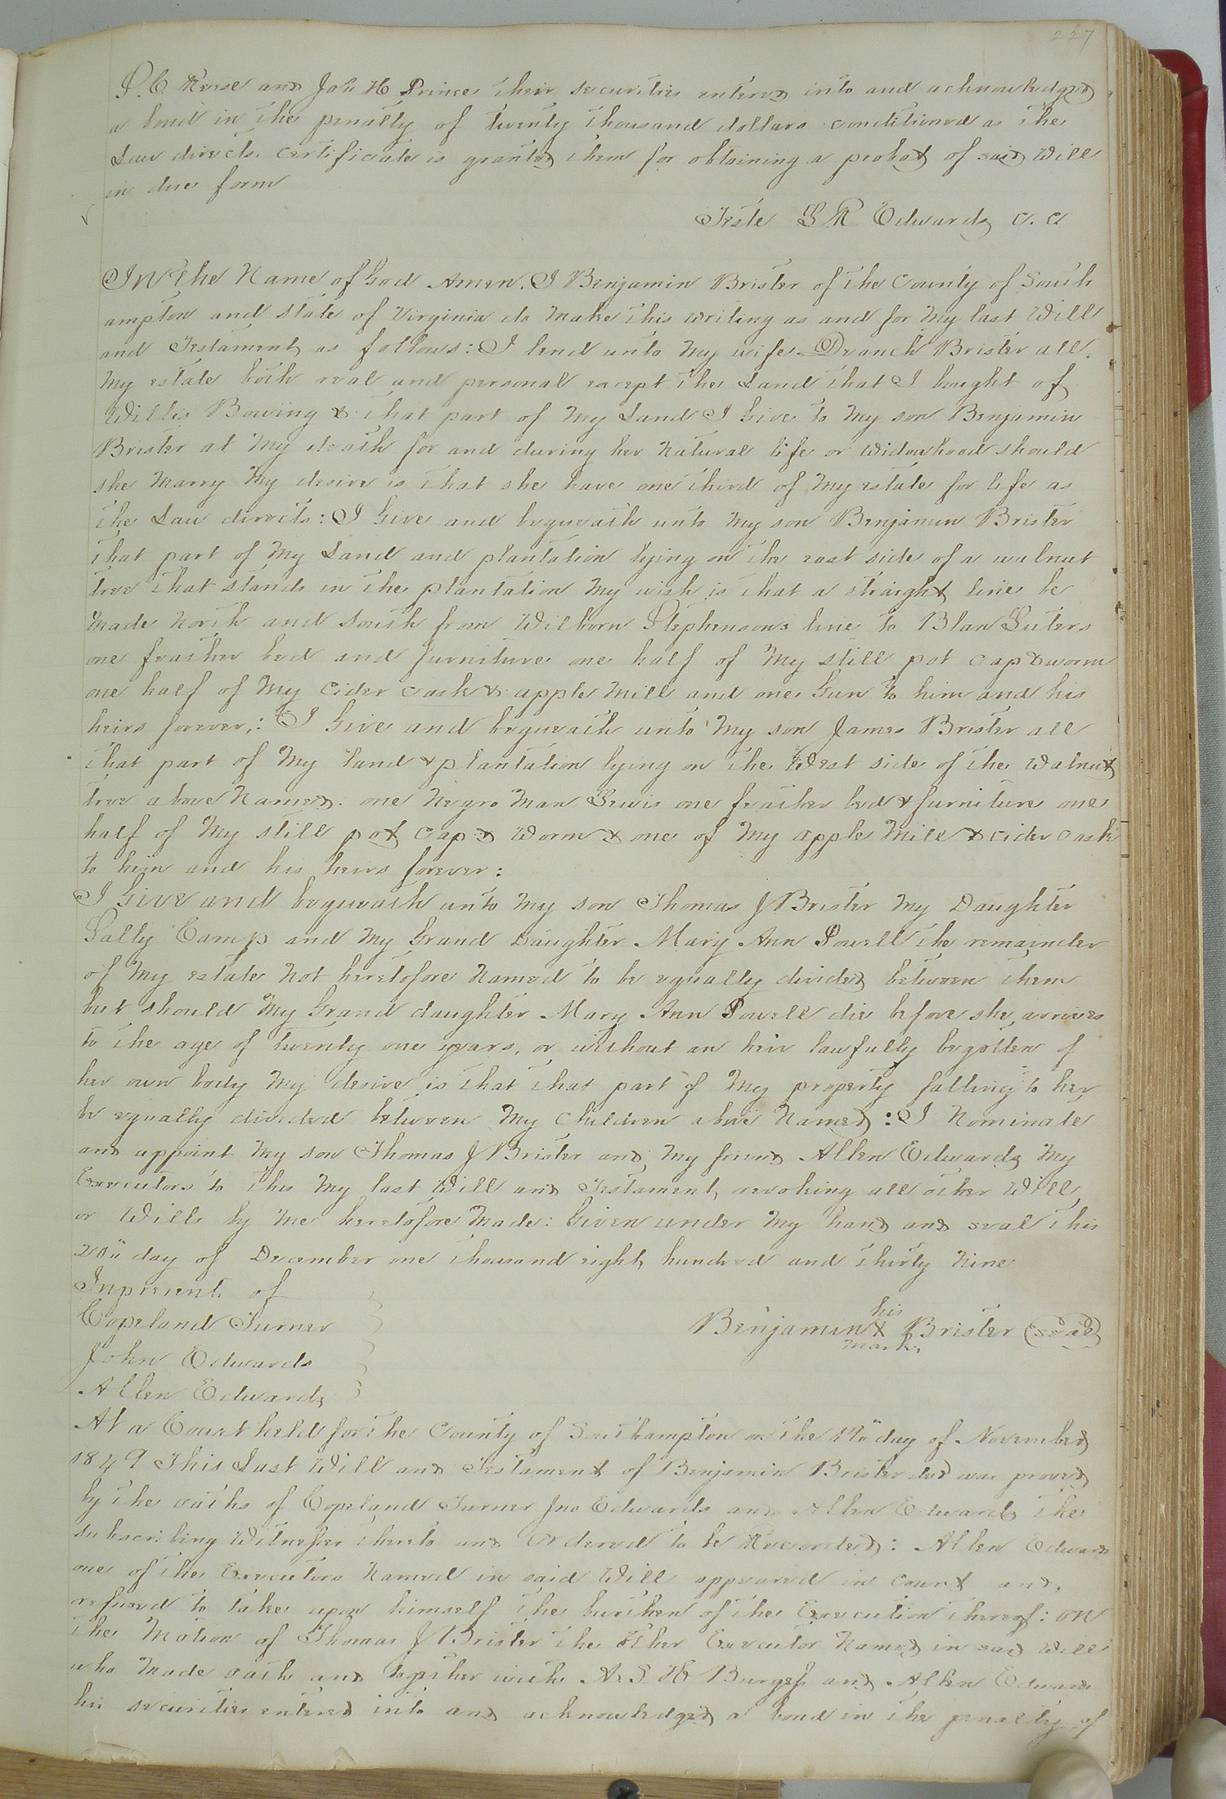 227
P. C. Reese and Jos H Prince their securities entered into and acknowledged
a bond in the penalty of twenty thousand dollars conditioned as the
Law directs. Certificate is granted them for obtaining a probat of said Will
in due form
Teste L R Edwards C. C
In the Name of God Amen. I Benjamin Brister of the County of South
ampton and state of Virginia do make this writing as and for My last Will
and Testament as follows: I lend unto My wife Brister all
My estate both real and personal except the Land that I bought of
Willis Bowing & that part of My Land I Give to My son Benjamin
Brister at My death for and during her Natural life or widowhood should
she Marry My desire is that she have one third of My estate for life as
the Law directs: I Give and bequeath unto My son Benjamin Brister
that part of My Land and plantation lying on the east side of a walnut
tree that stands in the plantation My wish is that a straight line be
Made North and South from Wilborn Stephensons line to Blan
one feather bed and furniture one half of My still pot cap & worm
one half of My cider cask & apple Mill and one Gun to him and his
heirs forever,: I Give and bequeath unto My son James Brister all
that part of My land & plantation lying on the West side of the Walnut
tree above Named. one Negro Man Lewis one feather bed & furniture one
half of My still pot Cap & Worm & one of My apple Mill & cider cask
to him and his heirs forever:
I Give and bequeath unto My son Thomas J Brister My Daughter
Sally Camp and My Grand Daughter Mary Ann Powell the remainder
of My estate Not heretofore Named to be equally divided between them
but should My Grand daughter Mary Ann Powell die before she arrives
to the age of twenty one years, or without an heir lawfully begotten of
her own body My desire is that that part of My property falling to her
be equally divided between My Children above Named: I Nominate
and appoint My son Thomas J Brister and My friend Allen Edwards My
Executors to this My last Will and Testament revoking all other Will
or Wills by Me heretofore Made: Given under My hand and seal this
day of December one thousand eight hundred and thirty Nine
In presents of
Copeland Turner
John Edwards
Allen Edwards
his
Benjamin X Brister (seal)
mark.
At a Court held for the County of Southampton on the day of November
1849 This Last Will and Testament of Benjamin Brister decd was proved
by the oaths of Copeland Turner Jno Edwards and Allen Edwards the
subscribing Witnesses thereto and Ordered to be Recorded: Allen Edwards
one of the Executors Named in said Will appeared in Court and
refused to take upon himself the burthen of the Execution thereof: on
the Motion of Thomas J Brister the other Executor Named in said Will
who Made oath and together with A. S. H Burgess and Allen Edwards
his securities entered into and acknowledged a bond in the penalty of